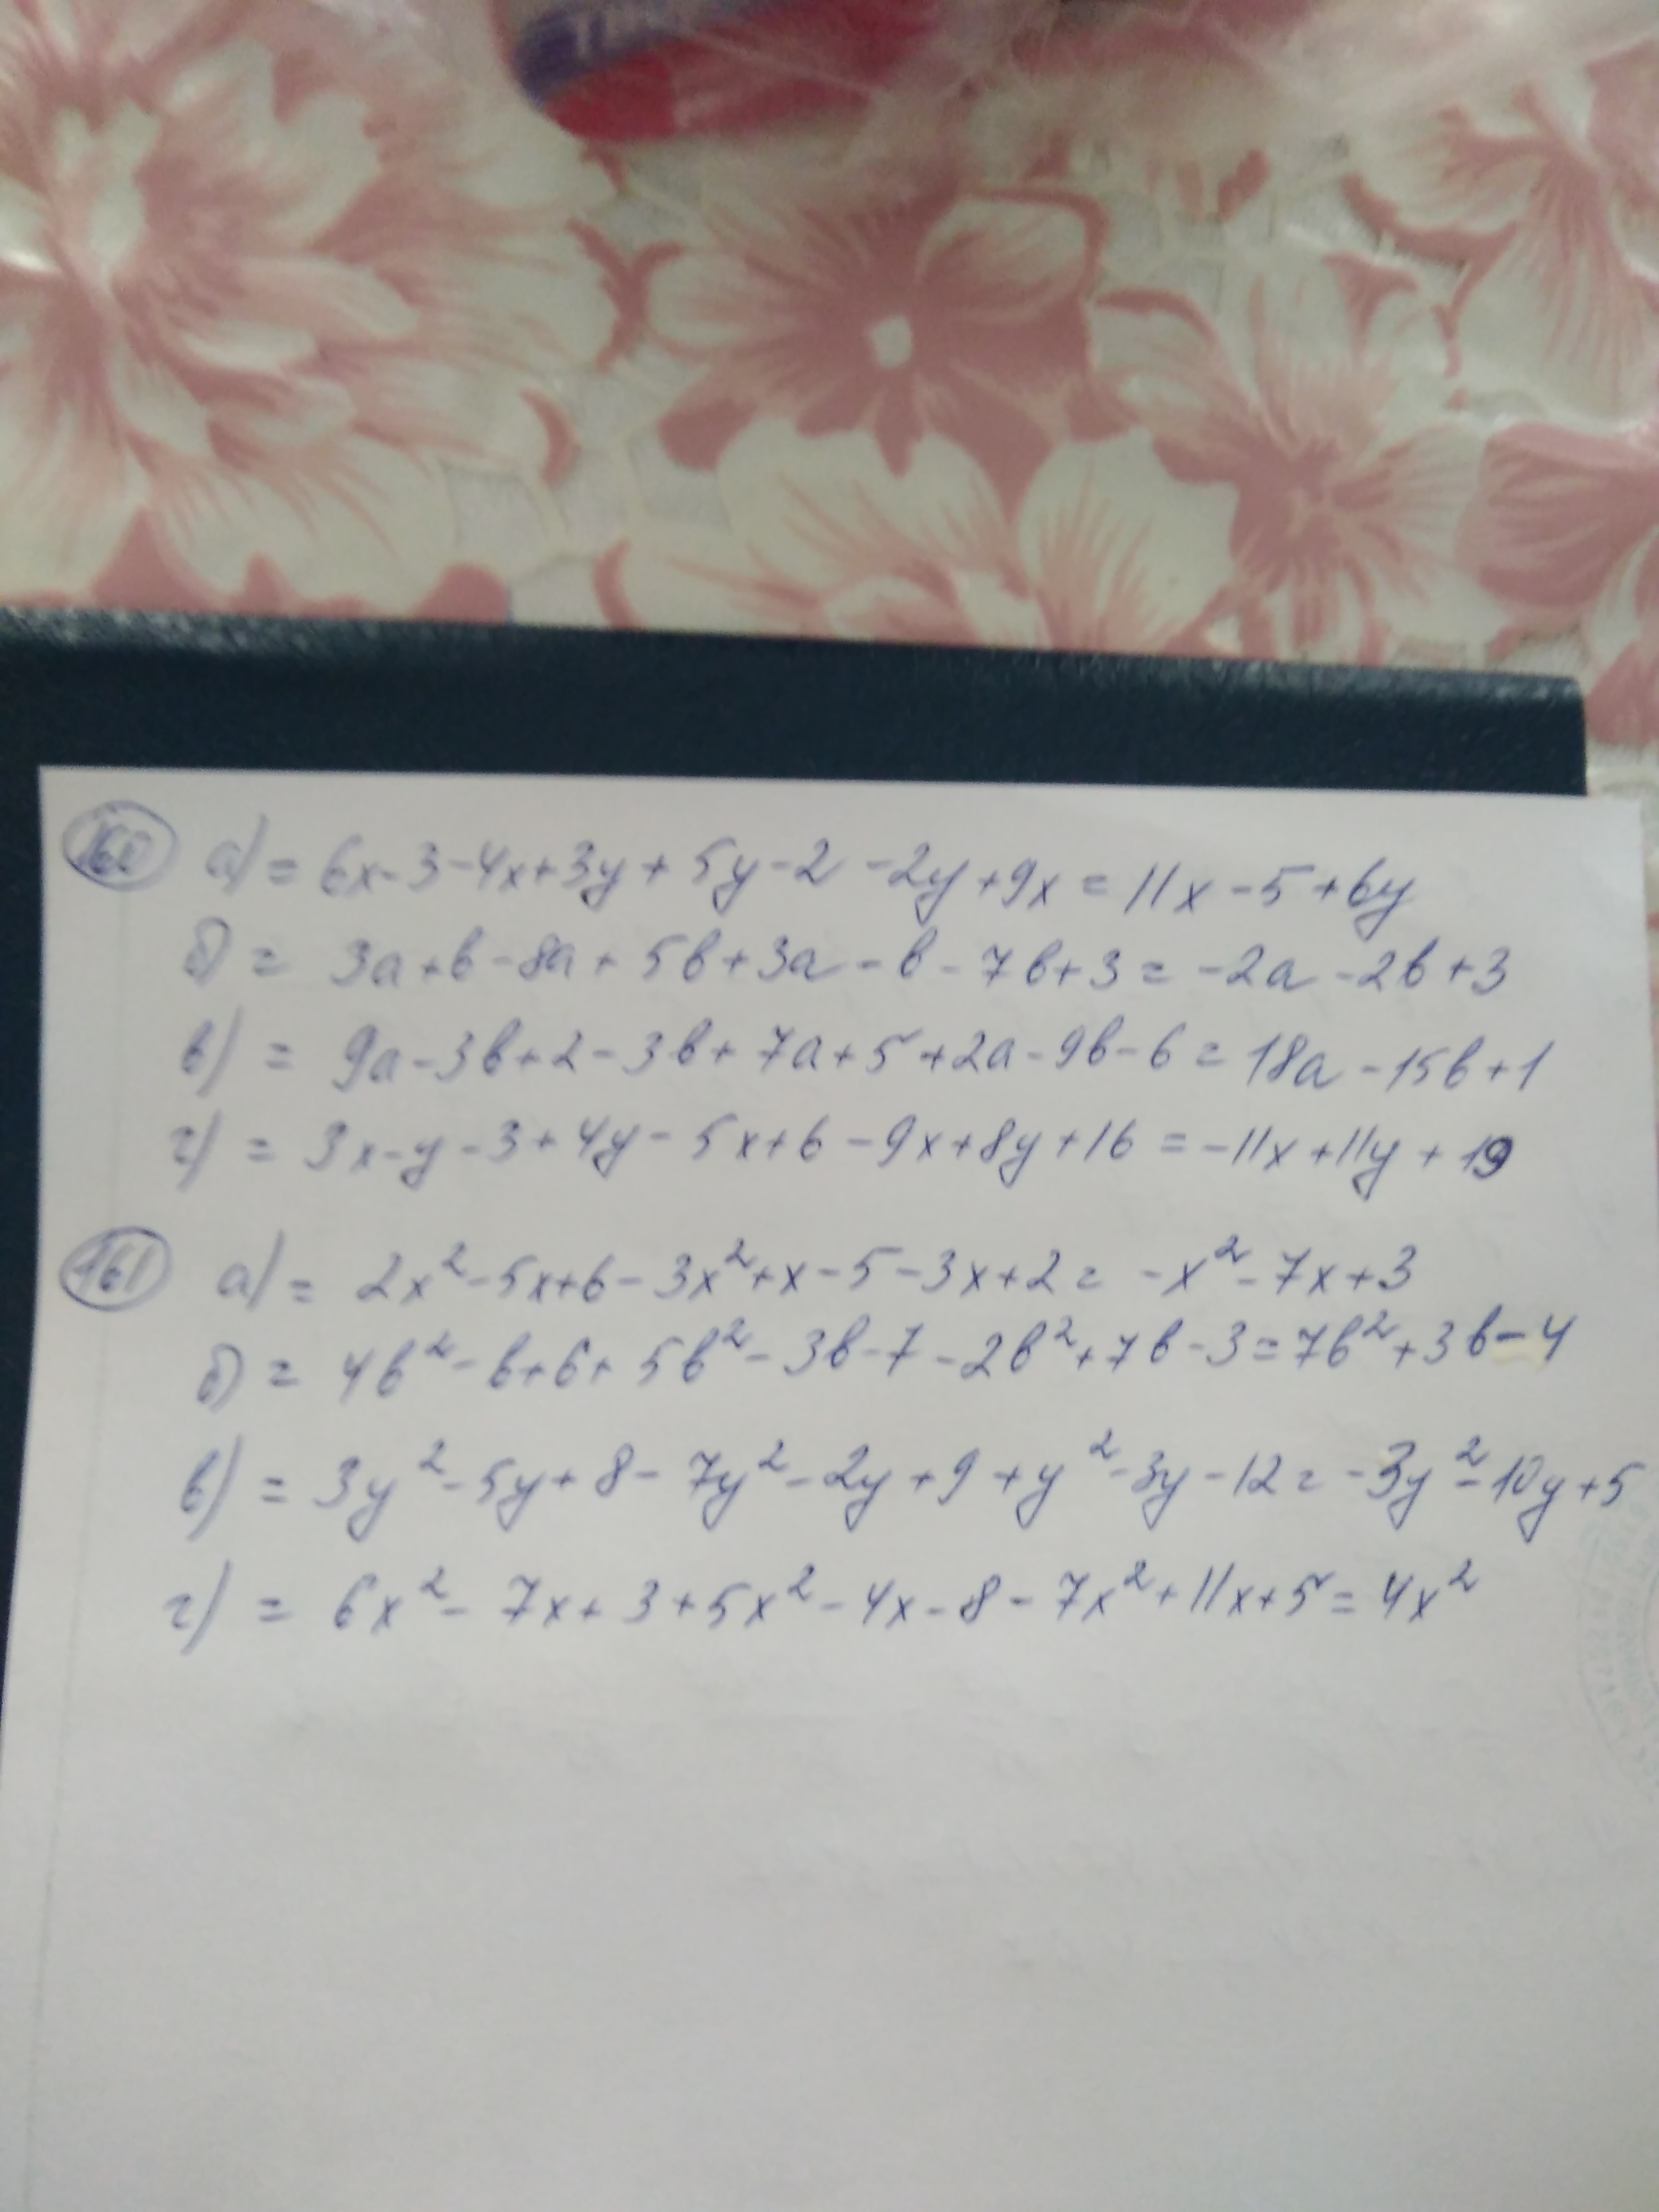 160 а) = 6x-3-4x+3y+5y-2-2y+9x = 11x-5+6y
б) = 3a+b-8a+5b+3a-b-7b+3 = -2a-2b+3
в) = 9a-3b+2-3b+7a+5+2a-9b-6 = 18a-15b+1
г) = 3x-y-3+4y-5x+6-9x+8y+16 = -11x+11y+19
161 а) = 2x²-5x+6-3x²+x-5-3x+2 = -x²-7x+3
б) = 4b²-b+6+5b²-3b-7-2b²+7b-3 = 7b²+3b-4
в) = 3y²-5y+8-7y²-2y+9+y²-3y-12 = -3y²-10y+5
г) = 6x²-7x+3+5x²-4x-8-7x²+11x+5 = 4x²